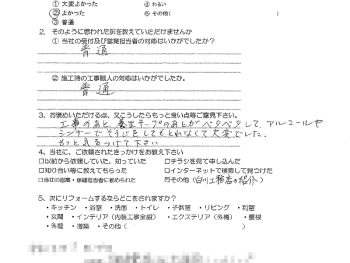 ① 大変よかった ④ わるい
② よかった ⑤ その他( )
③ 普通
2. そのように思われた訳を教えていただけませんか
① 当社の受付及び営業担当者の対応はいかがでしたか?
普通
② 施工時の工事職人の対応はいかがでしたか。
普通
3. お褒めいただける点、又こうしたらもっと良い点等ご意見下さい。
工事のあと、養生テープのあとがベタベタして、アルコールや
シンナーでそうじをしてもとれなくて大変でした。
もっと気をつけて下さい
4. 当社に、ご依頼されたきっかけをお教え下さい
□以前から依頼していた、知っていた □チラシを見て申し込んだ
□知り合い等に教えてもらった □インターネットで検索して見つけた
□当社の営業・修繕担当者に勧められた ☑その他(白川工務店の紹介)
5. 次にリフォームするならどこをされますか?
・キッチン ・浴室 ・洗面 ・トイレ ・子供室 ・リビング ・和室
・玄関 ・インテリア(内装工事全般) ・エクステリア(外構) ・屋根
・外壁 ・増築 ・その他( )